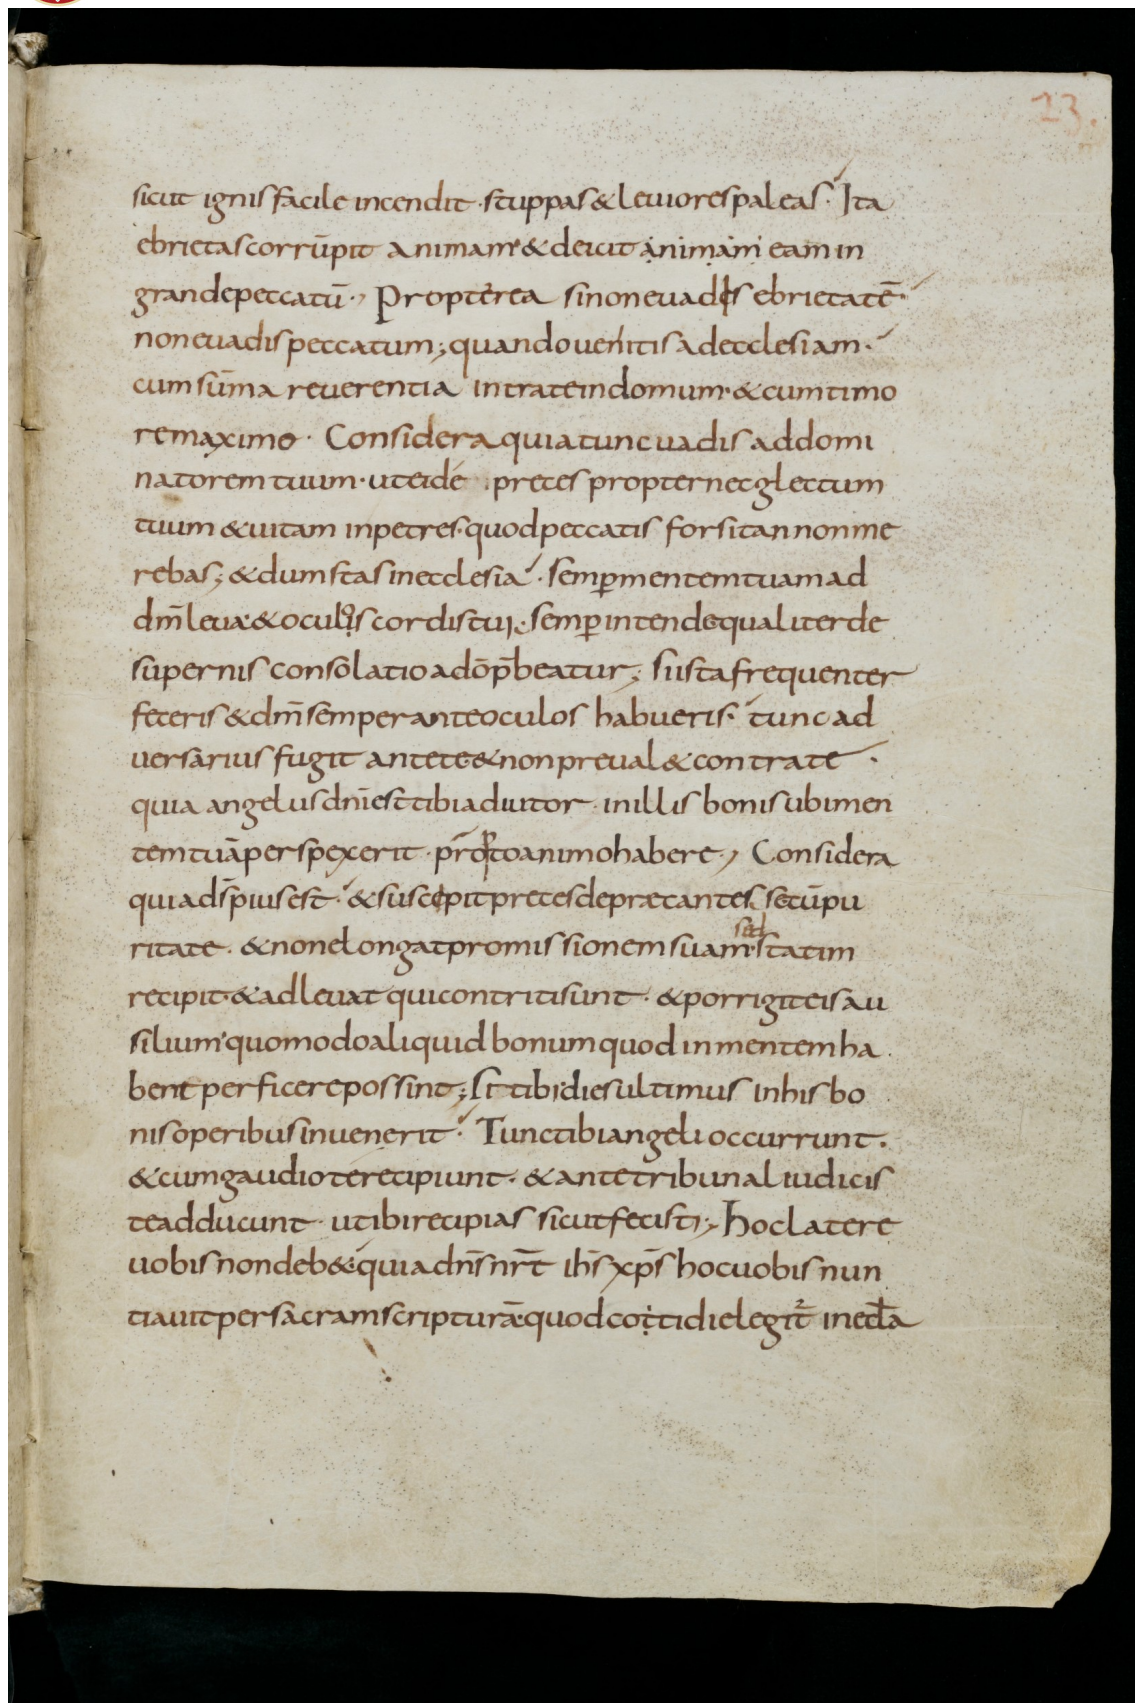 23.
sicut ignis facile incendit · stuppas & leuiores paleas · Ita
ebrietas corrūpit animam · & deicit animam eam in
grande peccatū ·, Propterea si non euades ebrietatē ·
non euadis peccatum; quando uenitis ad ecclesiam ·
cum sūma reuerentia intrate in domum · & cum timo
re maximo · Considera quia tunc uadis ad domi
natorem tuum · ut eide preces propter necglectum
tuum & uitam inpetres · quod peccatis forsitan non me
rebas; & dum stas in ecclesia · semꝑ mentem tuam ad
dm̄ leua · & oculos cordis tui · semꝑ intende qualiter de
supernis consolatio ad op̄beatur; si ista frequenter
feceris & dm̄ semper ante oculos habueris · tunc ad
uersarius fugit ante te & non preual& contra te ·
quia angelus dn̄i est tibi adiutor · in illis bonis ubi men
tem tuā perspexerit · habere ·, Considera
quia ds̄ pius est · & suscepit preces deprecantes secū pu
ritate · & non elongat promissionem suam · sed statim
recipit · & adleuat qui contriti sunt · & porrigit eis au
silium · quomodo aliquid bonum quod in mentem ha
bent perficere possint; si tibi dies ultimus in his bo
nis operibus inuenerit · Tunc tibi angeli occurrunt ·
& cum gaudio te recipiunt · & ante tribunal iudicis
te adducunt · ut ibi recipias sicut fecisti ·, Hoc latere
uobis non deb& · quia dn̄s nr̄t ih̄s xp̄s hoc uobis nun
tiauit per sacram scripturā · quod cottidie legit᷑ in eccl̄a